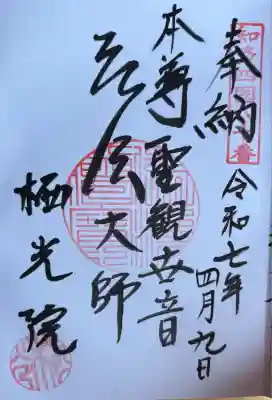 奉納
令和七年
四月九日
本尊聖観世音
弘法大師
栖光院